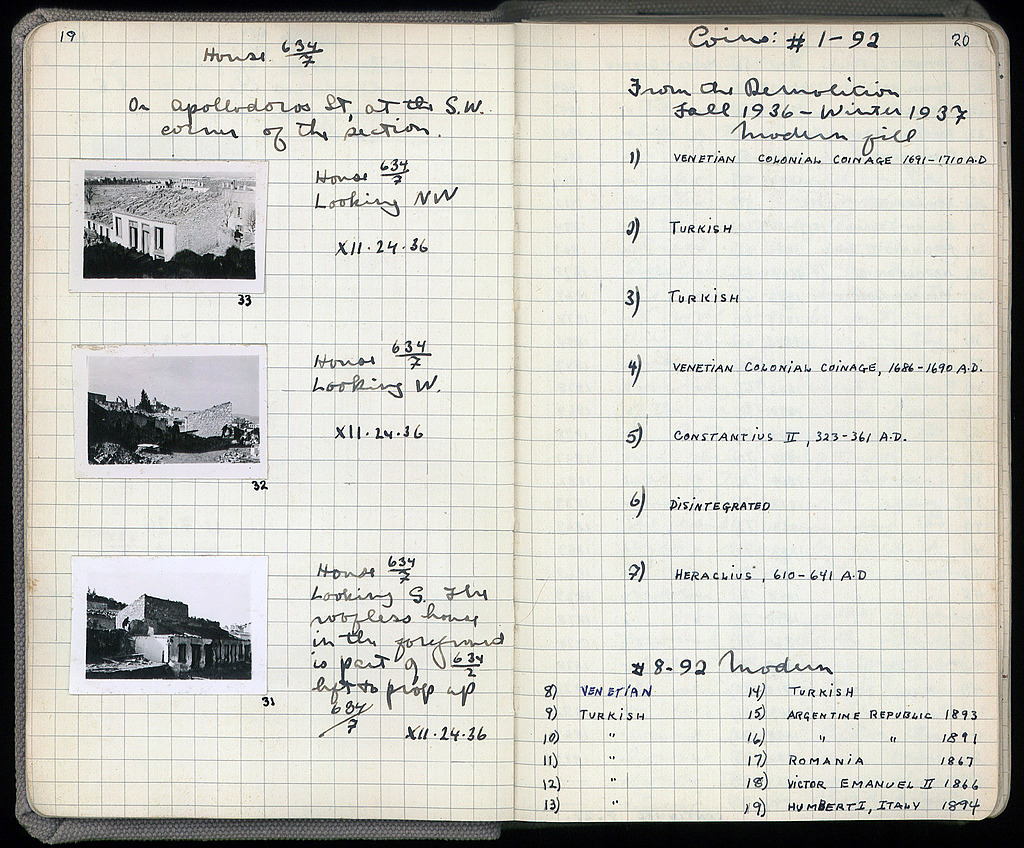 19
House 634/7
On Apollodoros St, at the S.W.
corner of the section.
House 634/7
Looking NW
XII·24·36
33
House 634/7
Looking W.
XII·24·36
32
House 634/7
Looking S. The
roofless house
in the foreground
is part of 634/2
left to prop up
634/7
XII·24·36
31
20
Coins: # 1-92
From the Demolition
Fall 1936 - Winter 1937
Modern fill
1) VENETIAN COLONIAL COINAGE 1691-1710 A.D
2) TURKISH
3) TURKISH
4) VENETIAN COLONIAL COINAGE, 1686-1690 A.D.
5) CONSTANTIUS II, 323-361 A.D.
6) DISINTEGRATED
7) HERACLIUS, 610-641 A.D
# 8-92 Modern
8) VENETIAN
9) TURKISH
10) "
11) "
12) "
13) "
14) TURKISH
15) ARGENTINE REPUBLIC 1893
16) " " 1891
17) ROMANIA 1867
18) VICTOR EMANUEL II 1866
19) HUMBERT I, ITALY 1894